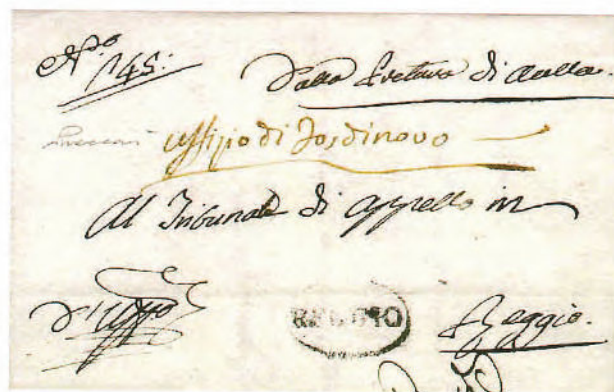 N.º 145:
Dalla Pretura di Aulla.
uffizio di Fosdinovo
Al Tribunale di Appello in
D'uffo
REGGIO
Reggio.